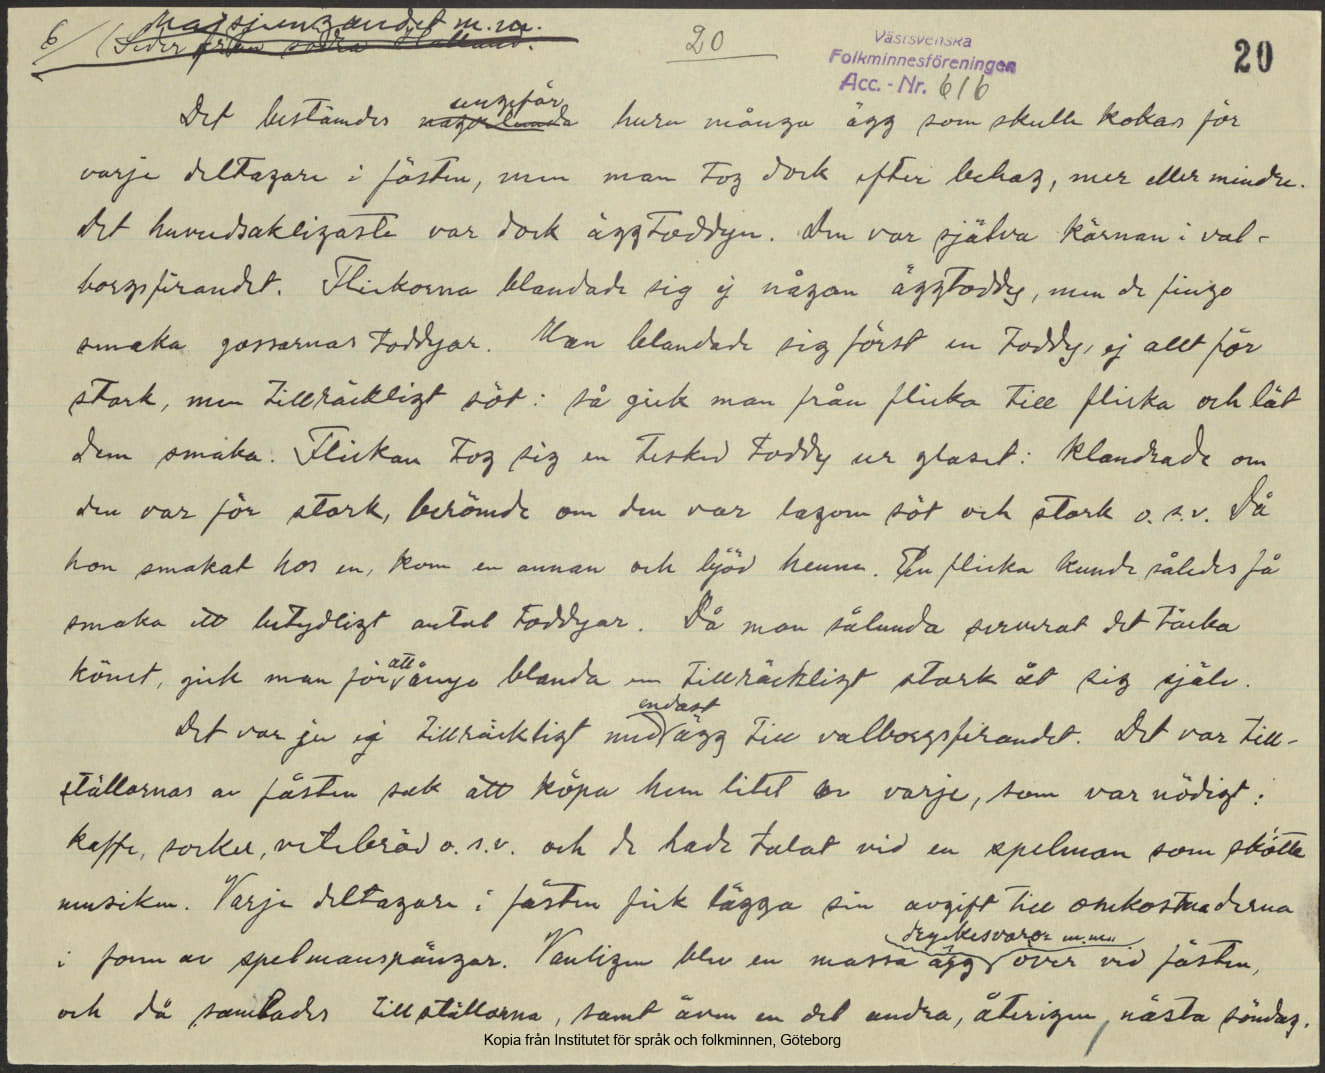 6/ Majsjungandet m.m.
(Seder från södra Halland.
20
Västsvenska
Folkminnesföreningen
Acc. - Nr. 616
20
Det bestämdes någorlunda ungefär huru många ägg som skulle kokas för
varje deltagare i fästen, men man tog dock efter behag, mer eller mindre.
Det huvudsakligaste var dock äggtoddyn. Den var själva kärnan i val-
borgsfirandet. Flickorna blandade sig ej någon äggtoddy, men de fingo
smaka gossarnas toddyar. Man blandade sig först en toddy, ej allt för
stark, men tillräckligt söt: så gick man från flicka till flicka och lät
dem smaka. Flickan tog sig en tesked toddy ur glaset: klandrade om
den var för stark, berömde om den var lagom söt och stark o.s.v. Då
hon smakat hos en, kom en annan och bjöd henne. En flicka kunde således få
smaka ett betydligt antal toddyar. Då man sålunda serverat det täcka
könet, gick man för att ånyo blanda en tillräckligt stark åt sig själv.
Det var ju ej tillräckligt med endast ägg till valborgsfirandet. Det var till-
ställarnas av fästen sak att köpa hem litet av varje, som var nödigt:
kaffe, socker, vetebröd o.s.v. och de hade talat vid en spelman som skötte
musiken. Varje deltagare i fästen fick lägga sin avgift till omkostnaderna
i form av spelmanspängar. Vanligen blev en massa ägg dryckesvaror m.m. över vid fästen,
och då samlades tillställarna, samt även en del andra, återigen nästa söndag.
Kopia från Institutet för språk och folkminnen, Göteborg